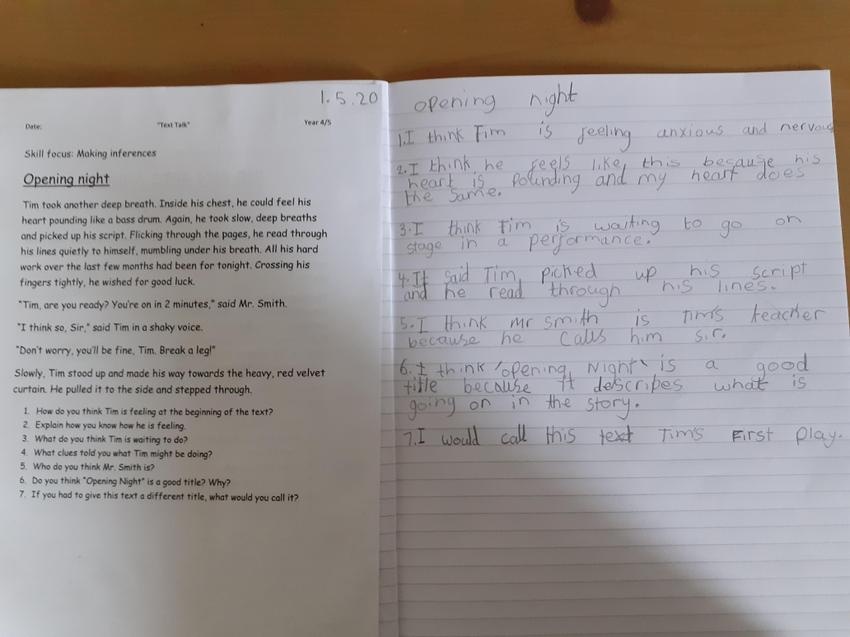 Date:
"Text Talk"
Year 4/5
Skill focus: Making inferences
Opening night
Tim took another deep breath. Inside his chest, he could feel his
heart pounding like a bass drum. Again, he took slow, deep breaths
and picked up his script. Flicking through the pages, he read through
his lines quietly to himself, mumbling under his breath. All his hard
work over the last few months had been for tonight. Crossing his
fingers tightly, he wished for good luck.
"Tim, are you ready? You're on in 2 minutes," said Mr. Smith.
"I think so, Sir," said Tim in a shaky voice.
"Don't worry, you'll be fine, Tim. Break a leg!"
Slowly, Tim stood up and made his way towards the heavy, red velvet
curtain. He pulled it to the side and stepped through.
1. How do you think Tim is feeling at the beginning of the text?
2. Explain how you know how he is feeling.
3. What do you think Tim is waiting to do?
4. What clues told you what Tim might be doing?
5. Who do you think Mr. Smith is?
6. Do you think "Opening Night" is a good title? Why?
7. If you had to give this text a different title, what would you call it?
1.5.20
opening night
1.I think Tim is feeling anxious and nervous
2.I think he feels like this because his
heart is pounding and my heart does
the same.
3.I think Tim is waiting to go on
stage in a performance.
4.It said Tim picked up his script
and he read through his lines.
5.I think mr smith is tim's teacher
because he calls him sir.
6.I think 'opening Night' is a good
title because it describes what is
going on in the story.
7.I would call this text Tim's First play.